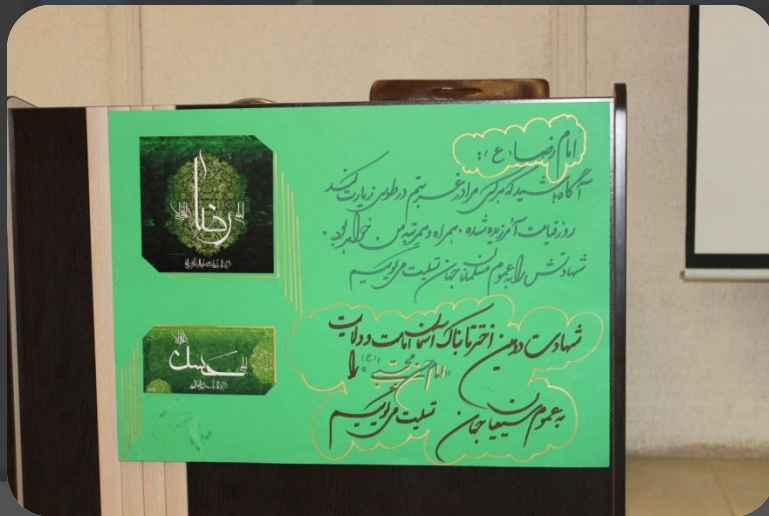 امام رضا (ع):
آگاه باشید که هر کس مرا در غربتم در طوس زیارت کند
روز قیامت آمرزیده شده، همراه و همرتبه من خواهد بود.
شهادتش را به عموم مسلمانان جهان تسلیت می‌گوییم
شهادت دومین اختر تابناک آسمان امامت و ولایت
«امام حسن مجتبی (ع)» را
به عموم شیعیان جهان تسلیت می‌گوییم
رضا
حسن